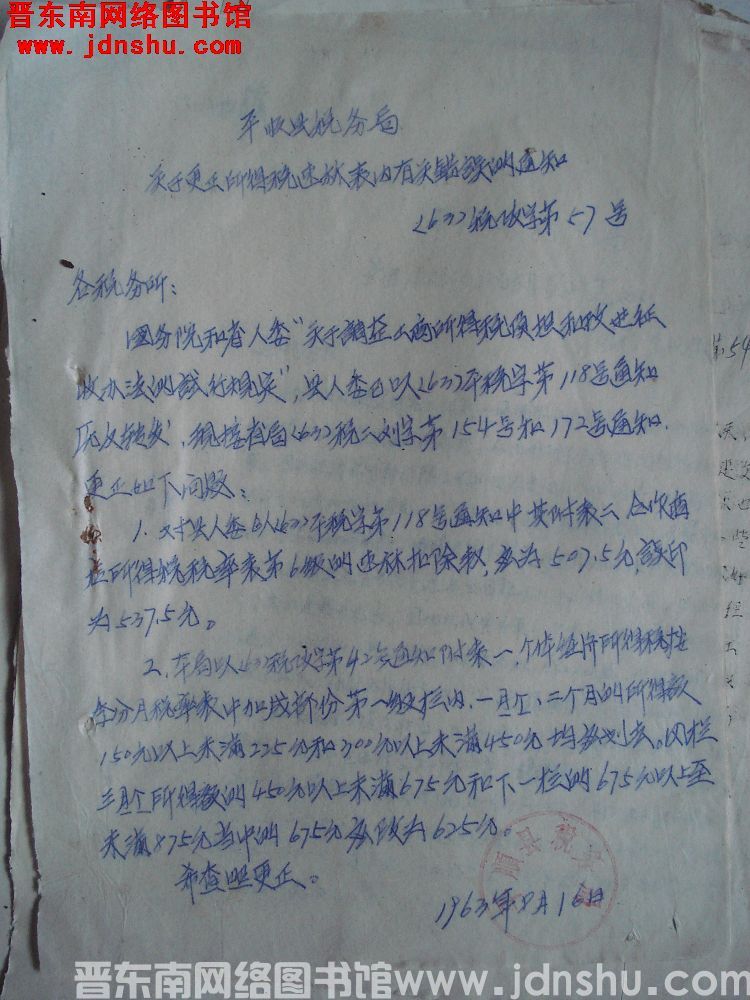 晋东南网络图书馆
www.jdnshu.com
平顺县税务局
关于更正所得税速祘表内有关错误的通知
(63)税政字第57号
各税务所：
国务院和省人委"关于调整工商所得税负担和改进征
收办法的试行规定"，县人委已以(63)平税字第118号通知
转发，现接省局(63)税二刘字第154号和172号通知，
更正如下问题：
1.对县人委(63)平税字第118号通知中其附表二合作商
店所得税税率表第6级的速祘扣除数，应为507.5元，误印
为537.5元。
2.本局以(63)税政字第42号通知附表一，个体经济所得税按
季分月税率表中加成部份第一级栏内，一月、二个月的所得额
150元以上未满225元和300元以上未满450元均应划去。以栏
三月个所得额的450元以上未满675元和下一栏的675元以上至
未满875元当中的675元应改为625元。
希查照更正。
1963年8月16日
顺县税务
晋东南网络图书馆www.jdnshu.com